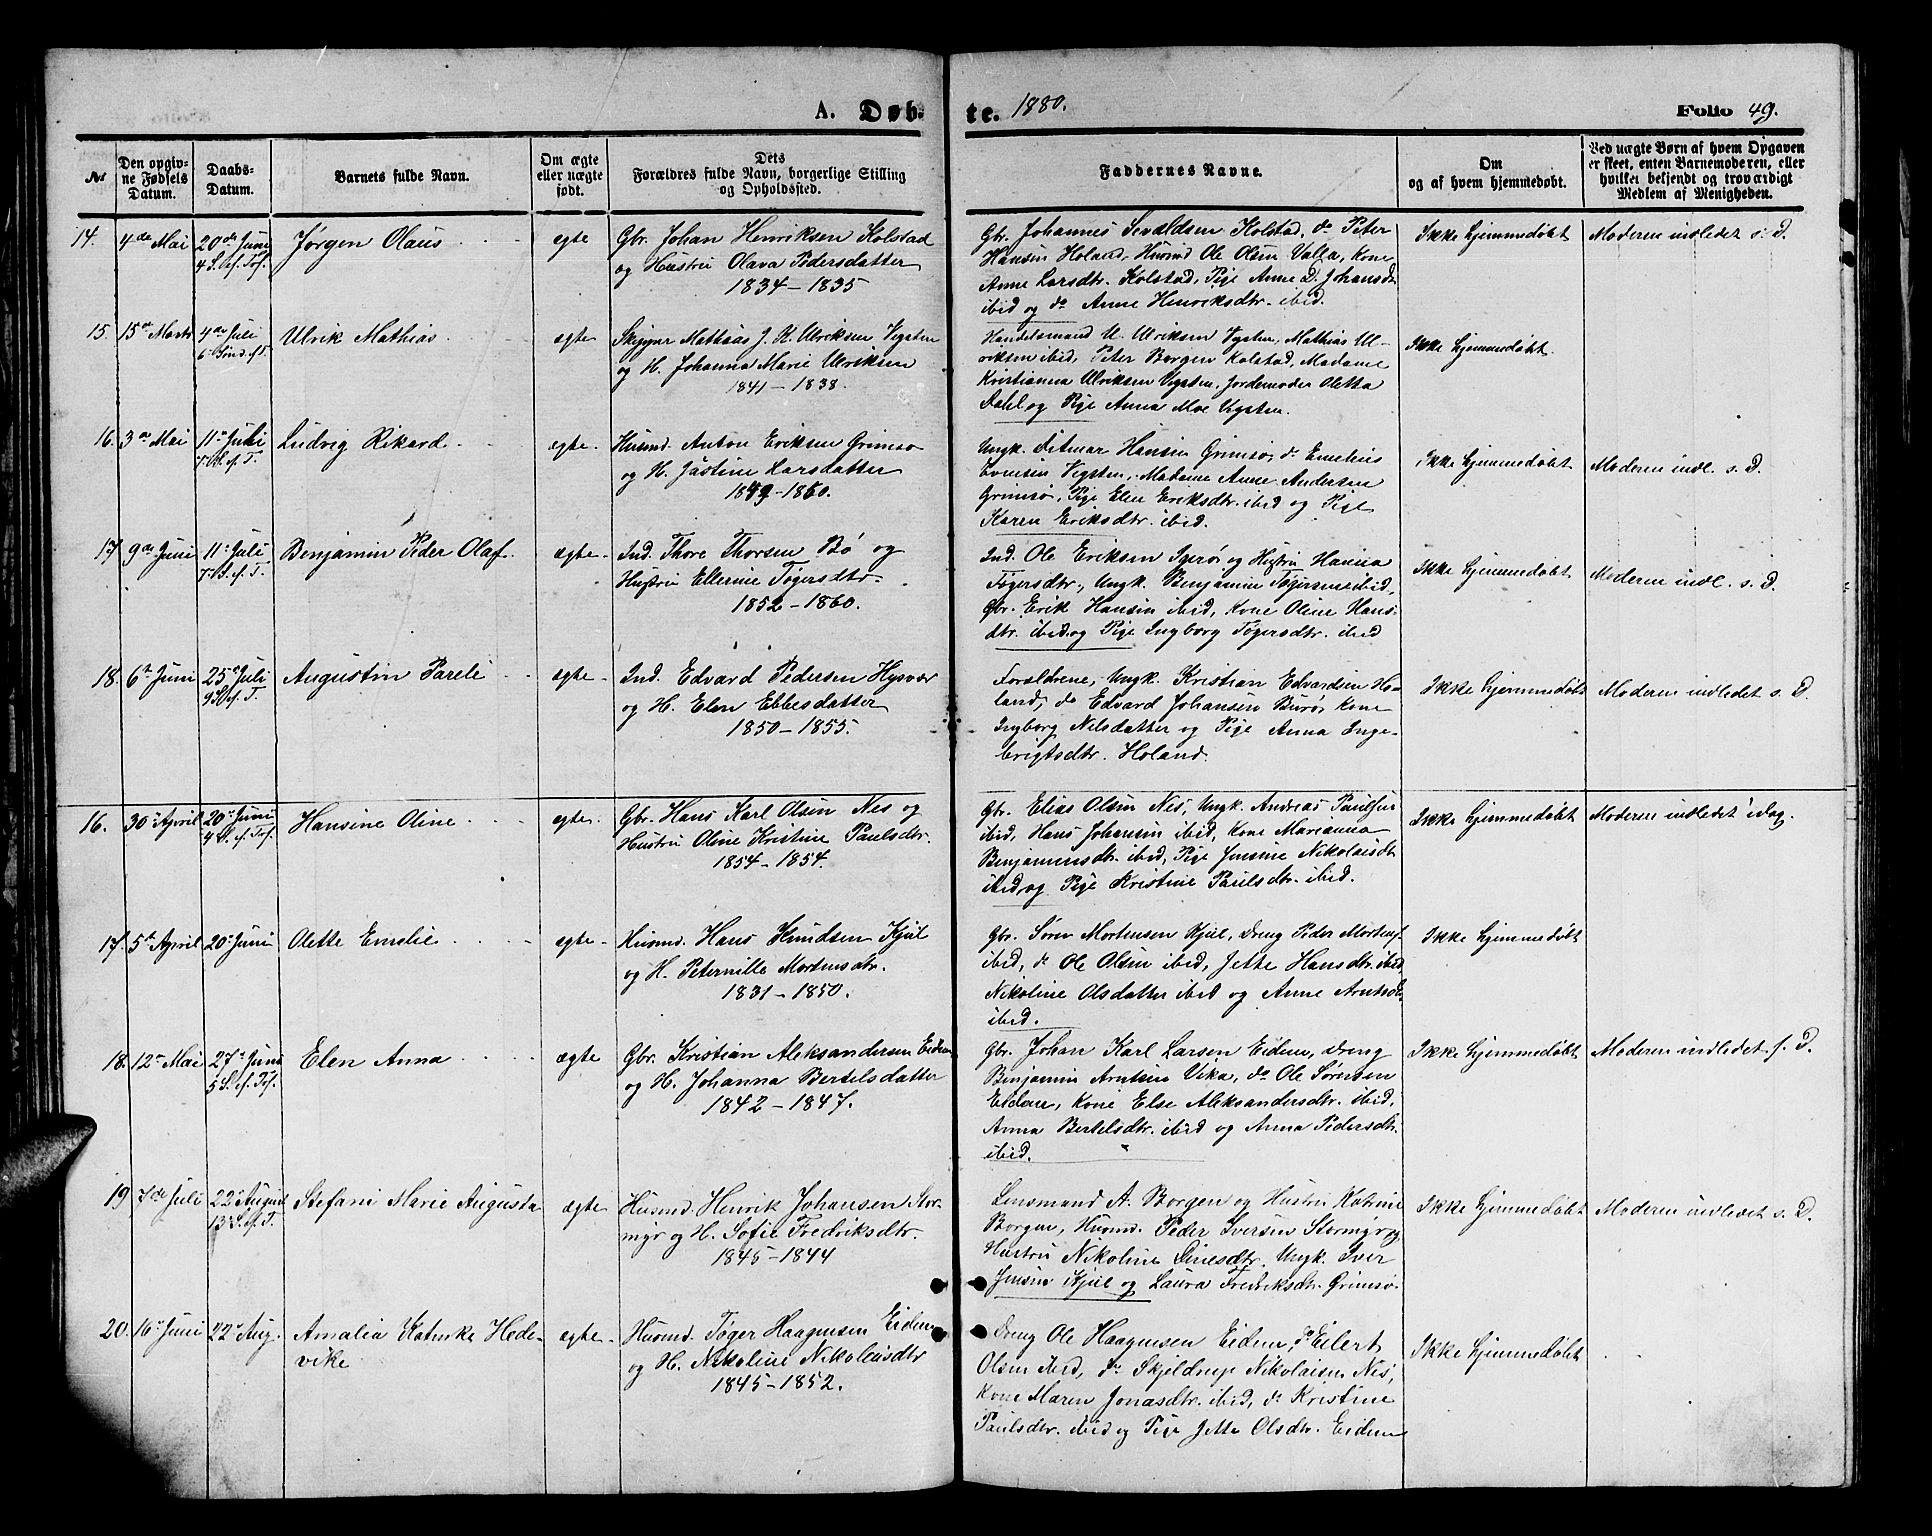 A. Døb-te. 1880. Folio 49.
No
Den opgiv-
ne Fødsels
Datum.
Daabs-
Datum.
Barnets fulde Navn.
Om ægte
eller uægte
født.
Dets
Forældres fulde Navn, borgerlige Stilling
og Opholdssted.
Faddernes Navne.
Om
og af hvem hjemmedøbt.
Ved uægte Børn af hvem Opgaven
er skeet, enten Barnemoderen, eller
hvilket bekjendt og troværdigt
Medlem af Menigheden.
14. 4de Mai
20de Juni
4 S. ef. Tof.
Jørgen Olaus
ægte
Gbr. Johan Henriksen Kolstad
og Hustru Olava Pedersdatter
1834-1835
Gbr. Johannes Sevaldsen Kolstad, do Peter
Hansen Holand, Husmd Ole Olsen Valla, Kone
Anne Larsdtr. Kolstad, Pige Anne D. Johansdt
ibid og do Anne Henriksdtr. ibid.
Ikke hjemmedøbt
Moderen indledet s. D.
15. 15de Marts
4de Juli
6 Sønd. ef T.
Ulrik Mathias
ægte
Skipper Mathias J. K. Ulriksen Vegsten
og H. Johanna Marie Ulriksen
1841-1838.
Handelsmand U. Ulriksen Vegsten, Mathias Ul-
riksen ibid, Peter Borgen Kolstad, Madame
Kristianna Ulriksen Vegsten, Jordemoder Oletta
Dahl og Pige Anna Moe Vegsten.
Ikke hjemmedøbt.
16. 3de Mai
11te Juli
7. S. ef. T.
Ludvig Rikard
ægte
Husmd. Anton Eriksen Grimsø
og H. Jastine Larsdatter
1849-1860.
Ungk. Ditmar Hansen Grimsø, do Emelius
Evensen Vegsten, Madame Anne Andersen
Grimsø, Pige Elen Eriksdtr. ibid og Pige
Karen Eriksdtr. ibid.
Ikke hjemmedøbt
Moderen indl. s. D.
17. 9de Juni
11te Juli
7. S. ef. T.
Benjamin Peder Olaf
ægte
Ind. Thore Thorsen Bø og
Hustru Ellerine Tøgersdtr.
1852-1860.
Ind. Ole Eriksen Igerø og Hustru Hanna
Tøgersdtr., Ungk. Benjamin Tøgersen ibid,
Gbr. Erik Hansen ibid, Kone Oline Hans-
dtr. ibid og Pige Ingborg Tøgersdtr. ibid
Ikke hjemmedøbt
Moderen indl. s. D.
18. 6te Juni
25de Juli
9 S. ef. T.
Augustin Pareli
ægte
Ind. Edvard Pedersen Hysvær
og H. Elen Ebbesdatter
1850-1855.
Forældrene, Ungk. Kristian Edvardsen Ho-
land, do Edvard Johansen Burø, Kone
Ingborg Nilsdatter og Pige Anna Inge-
brigtsdtr. Holand.
Ikke hjemmedøbt
Moderen indledet s. D.
16. 30te April
20de Juni
4 S. ef. Tof.
Hansine Oline
ægte
Gbr. Hans Karl Olsen Nes og
Hustru Oline Kristine Paulsdtr.
1854-1854.
Gbr. Elias Olsen Nes, Ungk. Andreas Paulsen
ibid, Hans Johansen ibid, Kone Marianna
Benjaminsdtr. ibid, Pige Jensine Nikolaisdt
ibid og Pige Kristine Paulsdtr. ibid.
Ikke hjemmedøbt
Moderen indledet idag.
17. 5te April
20de Juni
Olette Emelie
ægte
Husmd. Hans Knudsen Kjul
og H. Peternille Mortensdtr.
1831-1850.
Gbr. Søren Mortensen Kjul, Dreng Peder Mortens.
ibid, do Ole Olsen ibid, Jette Hansdtr. ibid
Nikoline Olsdatter ibid og Anne Arntsdt
ibid.
Ikke hjemmedøbt
18. 12te Mai
27de Juni
5 S. ef. Tof.
Elen Anna
ægte
Gbr. Kristian Aleksandersen Eidem
og H. Johanna Bertelsdatter
1842-1847.
Gbr. Johan Karl Larsen Eidem, Dreng
Benjamin Arntsen Vika, do Ole Sørensen
Eidem, Kone Else Aleksandersdtr. ibid,
Anna Bertelsdtr. ibid og Anna Pedersdtr.
ibid.
Ikke hjemmedøbt
Moderen indledet s. D.
19 7de Juli
22de August
13 S. ef. T.
Stefani Marie Augusta
ægte
Husmd. Henrik Johansen Stor-
myr og H. Sofie Fredriksdtr.
1845-1844
Lensmand A. Borgen og Hustru Katrine
Borgen, Husmd. Peder Iversen Stormyr og
Hustru Nikoline Linesdtr. Ungk. Iver
Jensen Kjul og Laura Fredriksdtr. Grimsø.
Ikke hjemmedøbt
Moderen indledet s. D.
20. 16de Juni
22de Aug.
Amalia Katinka Hede-
vike
ægte
Husmd. Tøger Haagensen Eidem
og H. Nikoline Nikolaisdtr
1845-1852.
Dreng Ole Haagensen Eidem, do Eilert
Olsen ibid, do Skjeldrup Nikolaisen Nes,
Kone Maren Jonasdtr. ibid, do Kristine
Paulsdtr. ibid og Pige Jette Olsdtr. Eidem
Ikke hjemmedøbt